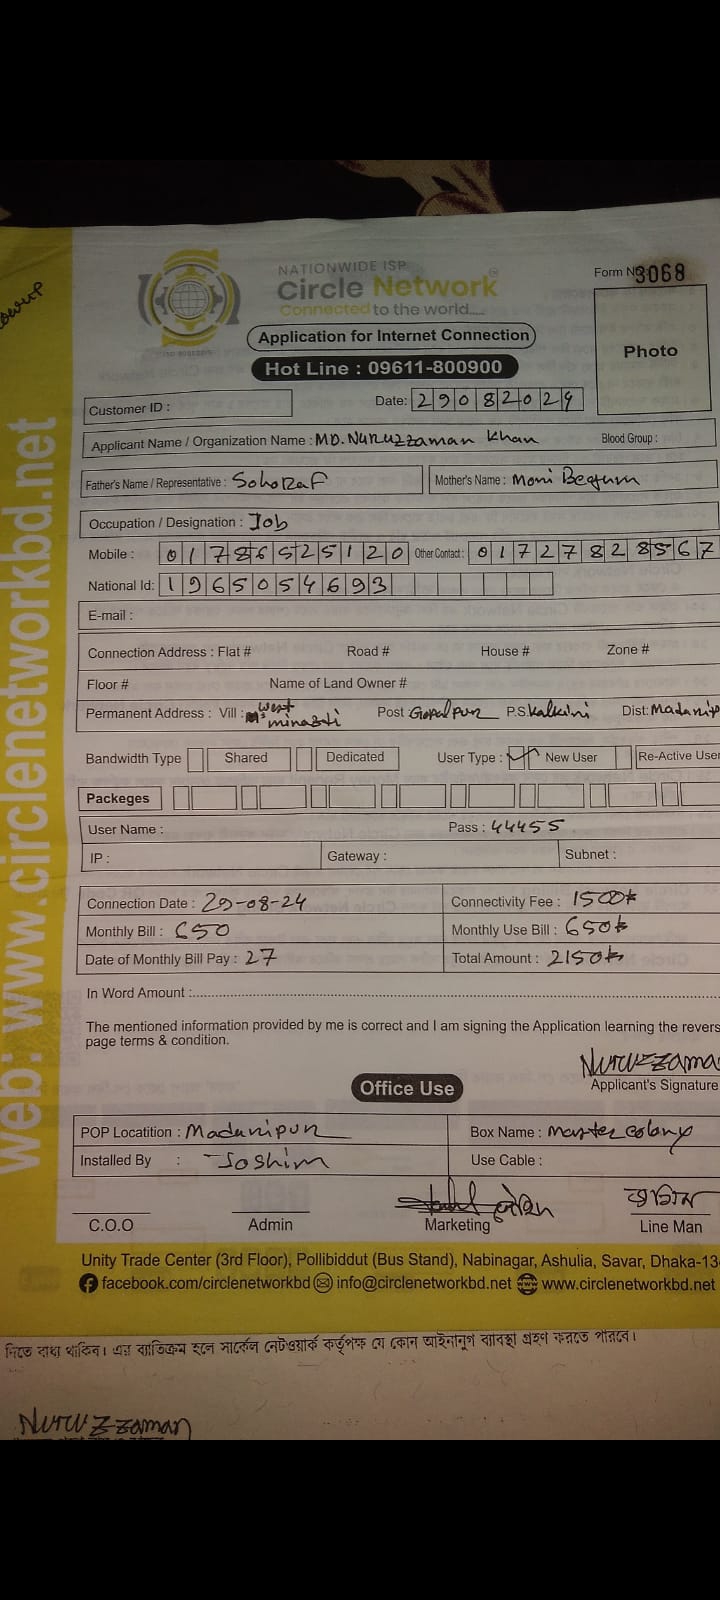 NATIONWIDE ISP
Circle Network
Connected to the world.....
Form No: 3068
Application for Internet Connection
Photo
Hot Line : 09611-800900
Customer ID :
Date: 29082024
Applicant Name / Organization Name : MD. Nuruzzaman Khan Blood Group :
Father's Name / Representative : Sohoraf Mother's Name : Moni Begum
Occupation / Designation : Job
Mobile : 01786525120 Other Contact : 01727828567
National Id: 1965054693
E-mail :
Connection Address : Flat # Road # House # Zone #
Floor # Name of Land Owner #
Permanent Address : Vill : west minazdi Post : Gopalpur P.S. Kalkini Dist: Madarip
Bandwidth Type Shared Dedicated User Type : New User Re-Active User
Packeges
User Name : Pass : 44455
IP : Gateway : Subnet :
Connection Date : 29-08-24 Connectivity Fee : 1500৳
Monthly Bill : 650 Monthly Use Bill : 650৳
Date of Monthly Bill Pay : 27 Total Amount : 2150৳
In Word Amount :
The mentioned information provided by me is correct and I am signing the Application learning the revers
page terms & condition.
Nuruzzama
Applicant's Signature
Office Use
POP Locatition : Madaripur Box Name : Master colony
Installed By : Joshim Use Cable :
C.O.O Admin Marketing Line Man
Unity Trade Center (3rd Floor), Pollibiddut (Bus Stand), Nabinagar, Ashulia, Savar, Dhaka-13
facebook.com/circlenetworkbd info@circlenetworkbd.net www.circlenetworkbd.net
web: www.circlenetworkbd.net
নিতে বাধ্য থাকিব। এর ব্যতিক্রম হলে সার্কেল নেটওয়ার্ক কর্তৃপক্ষ যে কোন আইনানুগ ব্যবস্থা গ্রহণ করতে পারবে।
Nuruzzaman